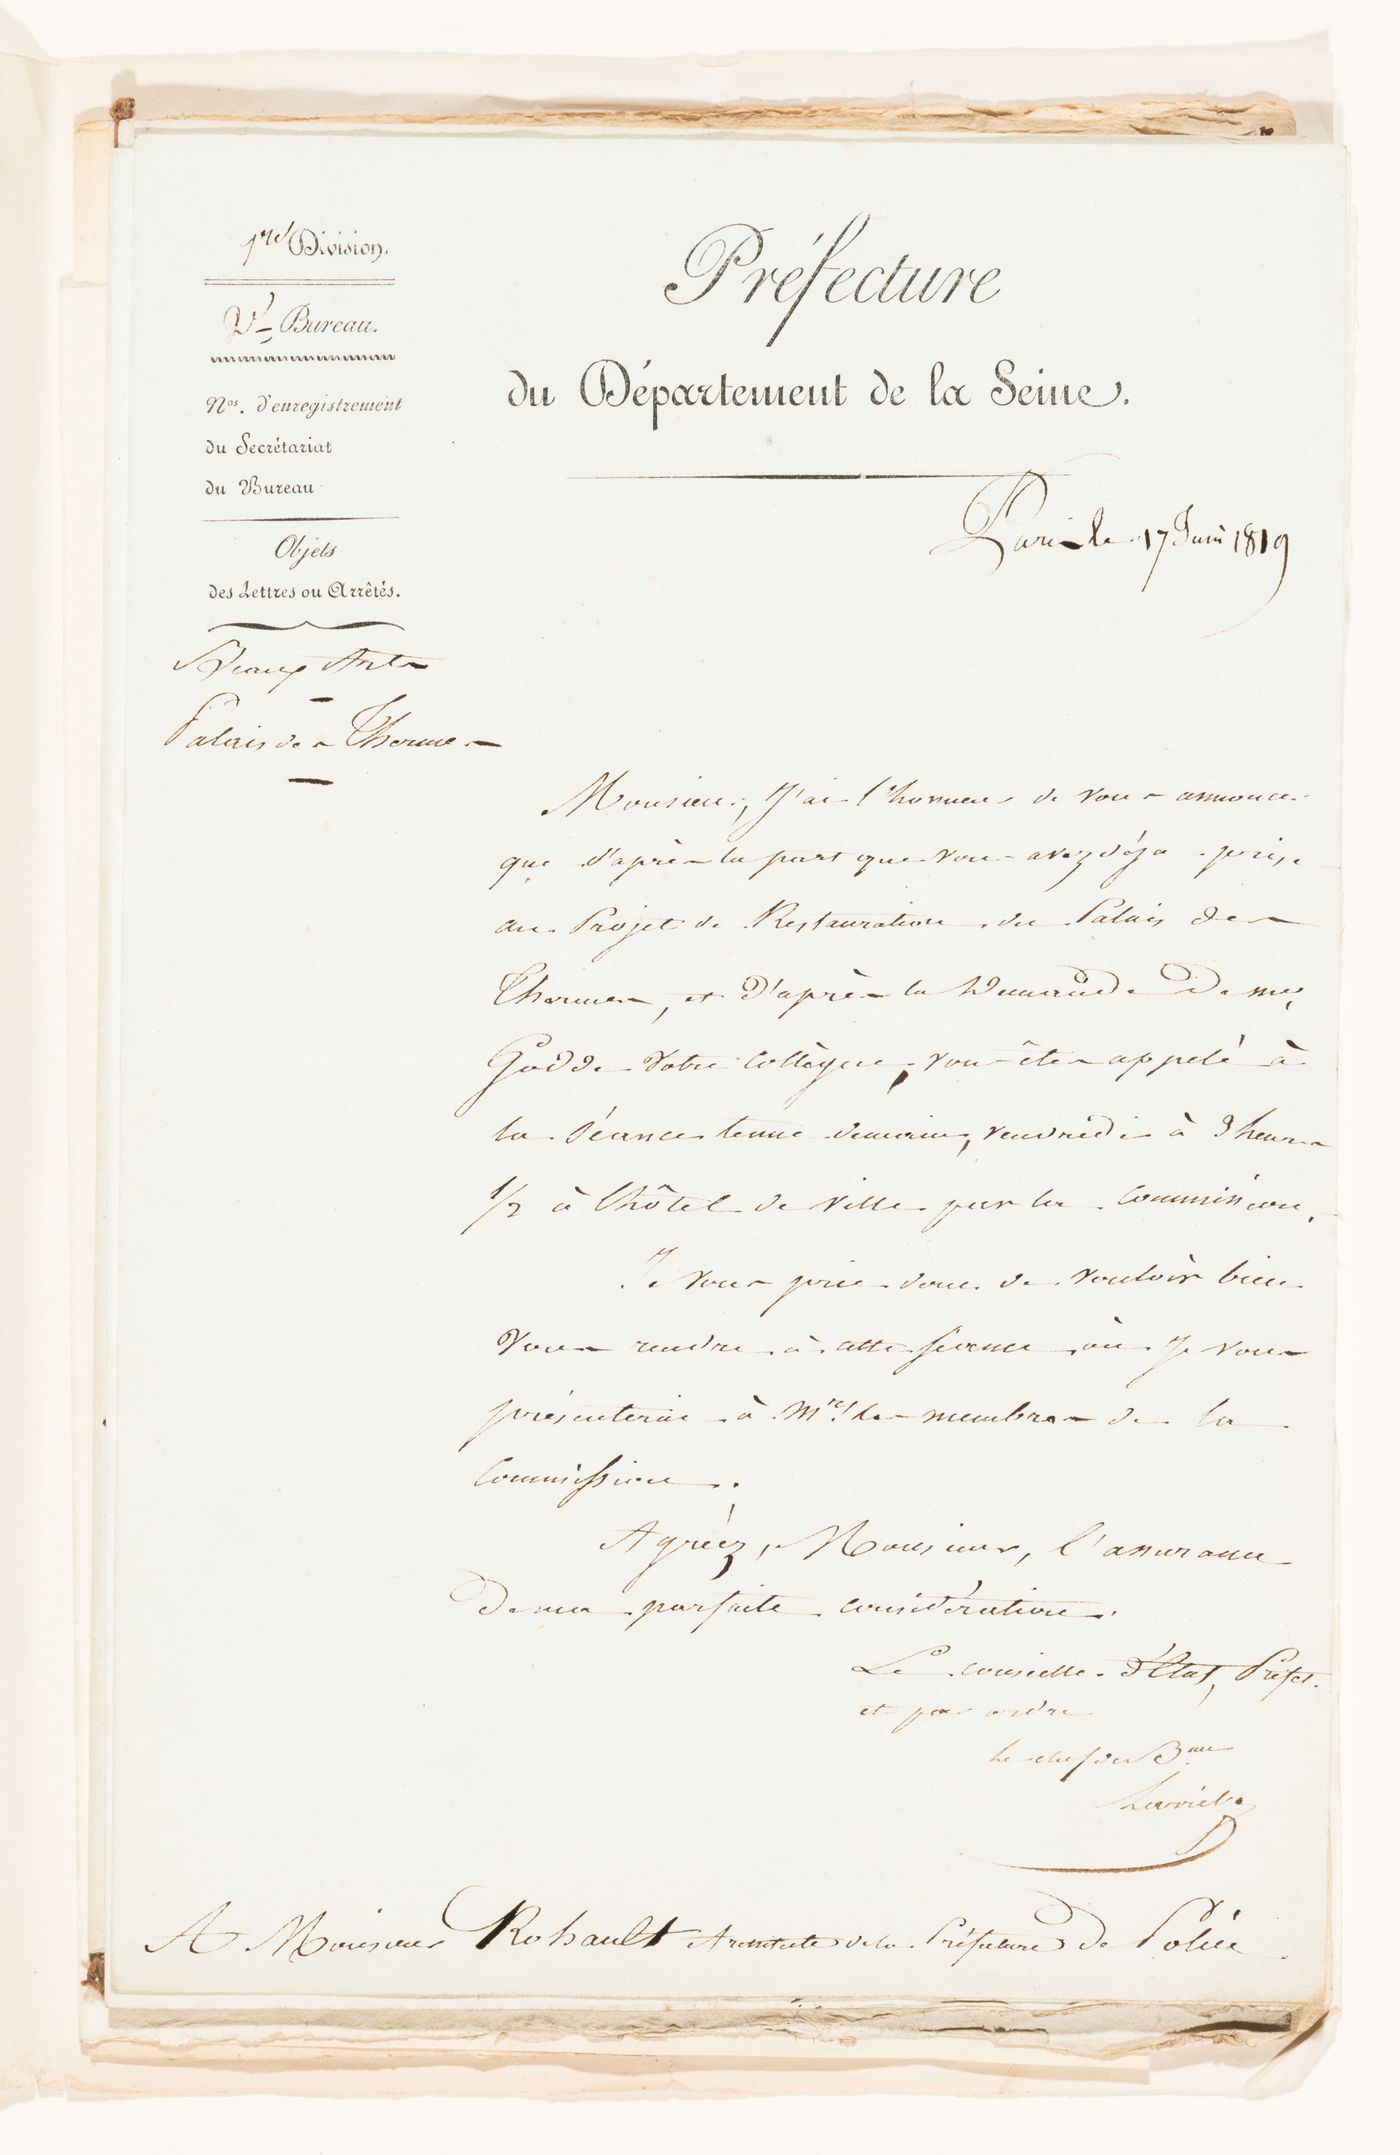 1re Division.
Vme Bureau.
Nos. d'enregistrement
du Secrétariat
du Bureau
Objets
des Lettres ou Arrêtés.
Beaux Arts
Palais des Thermes
Préfecture
du Département de la Seine.
Paris le 17 Juin 1819
Monsieur, J'ai l'honneur de vous annoncer
que d'après la part que vous avez déja prise
au Projet de Restauration du Palais des
Thermes, et d'après la Demande de Mr.
Godde votre collègue, vous êtes appelé à
la séance tenue demain, vendredi à 3 heures
1/2 à l'hôtel de ville par la Commission.
Je vous prie donc de vouloir bien
vous rendre à cette séance où Je vous
présenterai à Mrs. les membres de la
Commission.
Agréez, Monsieur, l'assurance
de ma parfaite considération.
Le Conseiller d'Etat, Préfet.
et par ordre
le chef du Bau
A Monsieur Rohault Architecte de la Préfecture de Police